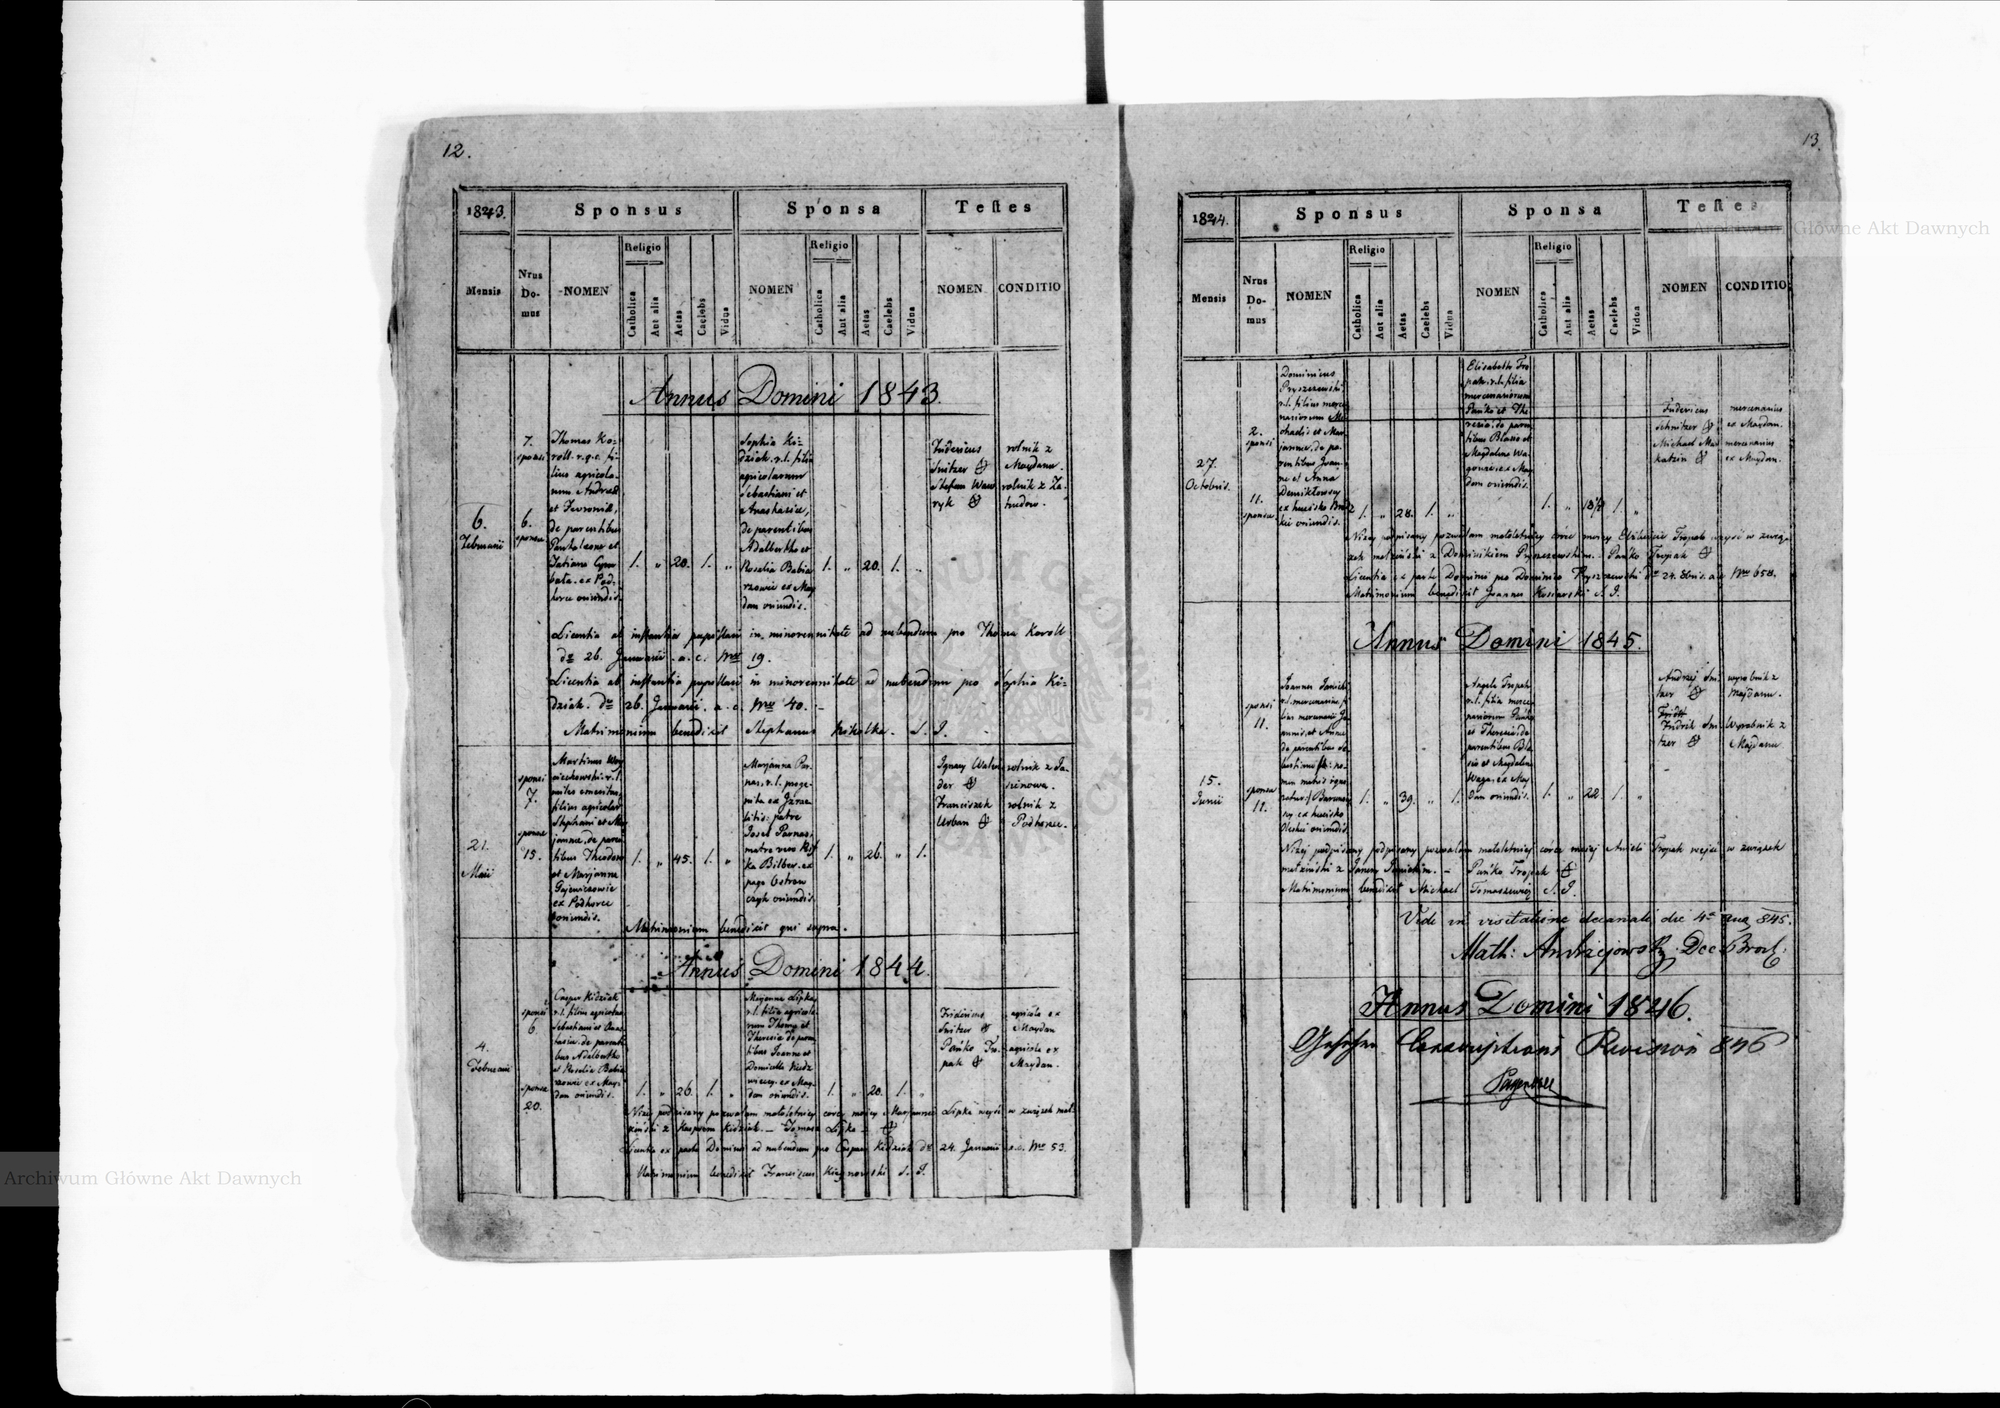 12.
1843.
Sponsus
Sponsa
Testes
Mensis
Nrus
Do-
mus
NOMEN
Religio
Catholica
Aut alia
Aetas
Caelebs
Vidua
NOMEN
Religio
Catholica
Aut alia
Aetas
Caelebs
Vidua
NOMEN
CONDITIO
Annus Domini 1843.
6.
Februarii
7.
sponsi
6.
sponsae
Thomas Ko-
roll. r.g.c. fi-
lius agricola-
rum Andreae
et Fevroniae,
de parentibus
Pantaleone et
Tatiana Cym-
bała. ex Pod-
horce oriundis.
1. „ 20. 1. „
Sophia Ki-
dziak. r.l. filia
agricolarum
Sebastiani et
Anastasiae,
de parentibus
Adalbertho et
Rosalia Babia
rzowie ex May
dan oriundis.
1. „ 20. 1. „
Fridericus
Snitzer
Stefan Waw
ryk
rolnik z
Maydanu.
rolnik z Za-
hudow.
Licentia ab instantia pupillari in minorennitate ad nubendum pro Thoma Koroll
dto 26. Januarii a.c. Nro 19.
Licentia ab instantia pupillari in minorennitate ad nubendum pro Sophia Ki-
dziak. dto 26. Januarii. a.c. Nro 40. -
Matrimonium benedixit Stephanus Mikolka. S. J.
21.
Maii
sponsi
7.
sponsae
15.
Martinus Woy
ciechowski. r.l.
miles emeritus,
filius agricolar
Stephani et Ma
janna, de paren
tibus Theodoro
et Marjanna
Gajewiczowie
ex Podhorce
oriundis.
1. „ 45. 1. „
Marjanna Par-
nas, r.l. proge-
nita ex Izrae-
litis: patre
Josel Parnas,
matre vero Rif
ka Bilber. ex
pago Ostrow
czyk oriundis.
1. „ 26. „ 1.
Ignacy Walen
der
Franciszek
Urban
rolnik z Ja-
sionowa.
rolnik z
Podhorce.
Matrimonium benedixit qui supra.
Annus Domini 1844.
4.
Februarii
sponsi
6
sponsae
20.
Casper Kidziak
r.l. filius agricolar
Sebastiani et Anas
tasiae. de parenti
bus Adalbertho
et Rosalia Babia
rzowie ex May-
dan oriundis.
1. „ 26. 1. „
Marjanna Lipka,
r.l. filia agricola-
rum Thoma et
Theresia de paren
tibus Joanne et
Domicella Niedz
wiecey. ex May-
dan oriundis.
1. „ 20. 1. „
Fridericus
Snitzer
Pańko Tro-
pak
agricola ex
Maydan
agricola ex
Maydan.
Niżey podpisany pozwalam małoletniey corce moiey Marjannie Lipka weyść w związek mał-
żeński z Kasprem Kidziak. — Tomasz Lipka
Licentia ex parte Dominii ad nubendum pro Casparo Kidziak dto 24. Januarii a.c. Nro 53.
Matrimonium benedixit Franciscus S. J.
13.
1844.
Sponsus
Sponsa
Testes
Mensis
Nrus
Do-
mus
NOMEN
Religio
Catholica
Aut alia
Aetas
Caelebs
Vidua
NOMEN
Religio
Catholica
Aut alia
Aetas
Caelebs
Vidua
NOMEN
CONDITIO
27.
Octobris.
2.
sponsi
11.
sponsae
Dominicus
Pryszczewski
r.l. filius merce
nariorum Mi
chaelis et Mar
janna, de pa-
rentibus Joan-
ne et Anna
ex hucisko Brod
kie oriundis.
1. „ 28. 1. „
Elisabeth Tro
pak. r.l. filia
mercenariorum
Pańko et The
resia, de paren
tibus Blasio et
Magdalena Wa-
gowie, ex May
dan oriundis.
1. „ 18½ 1. „
Fridericus
Schnitzer
Michael Mar
katzin
mercenarius
ex Maydan.
mercenarius
ex Maydan.
Niżey podpisany pozwalam małoletniey córce moiey Elżbiecie Tropak weyść w zwią-
zek małżeński z Dominikiem Pryszczewskim. - Pańko Tropak
Licentia ex parte Dominii pro Dominico Pryszczewski dto 24. 8bris. a.c. Nro 658.
Matrimonium benedixit Joannes S. J.
Annus Domini 1845.
15.
Junii
sponsi
11.
sponsae
11.
Joannes Janicki
r.l. mercenarius, fi
lius mercenarii Jo
annis, et Anna
de parentibus Se-
bastiano / no-
men matris igno
ratur
ex hucisko
Oleskie oriundis.
1. „ 39. „ 1.
Angela Tropak
r.l. filia merce-
nariorum Pańko
et Theresia, de
parentibus Bla
sio et Magdalena
Waga. ex May-
dan oriundis.
1. „ 22. 1. „
Andrzej Sni-
tzer
Fridrik Sni
tzer
wyrobnik z
Majdanu.
Wyrobnik z
Majdanu.
Niżej podpisany pozwalam małoletniej corce mojej Anieli Tropak wejść w związek
małżeński z Janem Janickim. - Pańko Tropak
Matrimonium benedixit Michael Tomaszewicz S. J.
Vidi in visitatione decanali die 4a aug 845.
Math: Andrzejowski Dec Brod.
Annus Domini 1846.
Gesehen Conscriptions Revision 846
Archiwum Główne Akt Dawnych
Archiwum Główne Akt Dawnych
ARCHIWUM GŁÓWNE AKT DAWNYCH